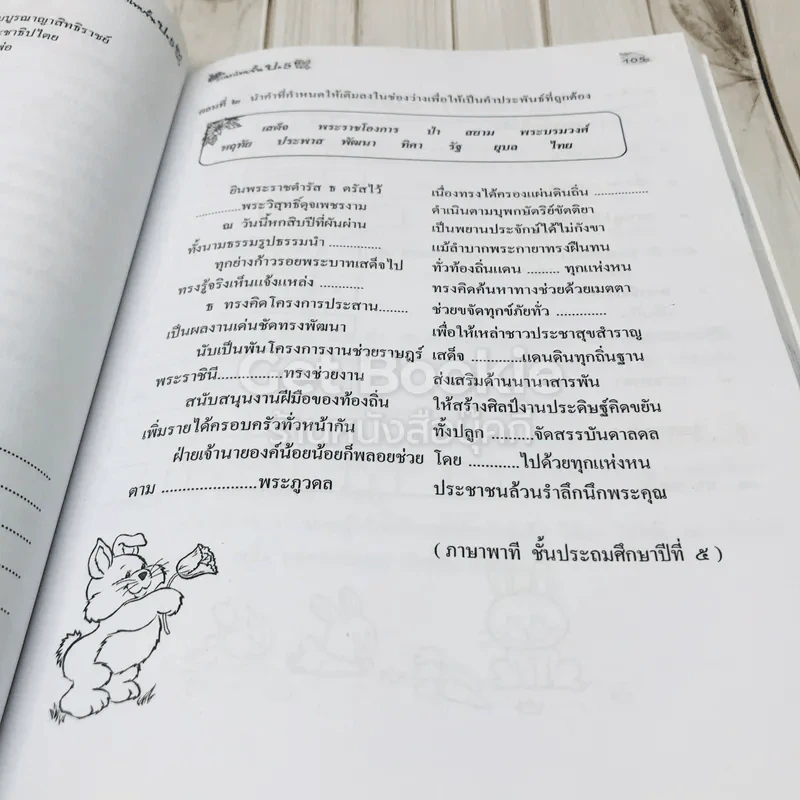 บูรณาญาสิทธิราชย์
ป.๕
105
ตอนที่ ๒ นำคำที่กำหนดให้เติมลงในช่องว่างเพื่อให้เป็นคำประพันธ์ที่ถูกต้อง
เสด็จ พระราชโองการ ป่า สยาม พระบรมวงศ์
หฤทัย ประพาส พัฒนา ทิศา รัฐ ยุบล ไทย
ยินพระราชดำรัส ธ ตรัสไว้ เนื่องทรงได้ครองแผ่นดินถิ่น .............
............พระวิสุทธิ์ดุจเพชรงาม ดำเนินตามบุพกษัตริย์ขัตติยา
ณ วันนี้หกสิบปีที่ผันผ่าน เป็นพยานประจักษ์ได้ไม่กังขา
ทั้งนามธรรมรูปธรรมนำ ............. แม้ลำบากพระกายาทรงฝืนทน
ทุกย่างก้าวรอยพระบาทเสด็จไป ทั่วท้องถิ่นแดน ......... ทุกแห่งหน
ทรงรู้จริงเห็นแจ้งแหล่ง ............ ทรงคิดค้นหาทางช่วยด้วยเมตตา
ธ ทรงคิดโครงการประสาน........ ช่วยขจัดทุกข์ภัยทั่ว .............
เป็นผลงานเด่นชัดทรงพัฒนา เพื่อให้เหล่าชาวประชาสุขสำราญ
นับเป็นพันโครงการงานช่วยราษฎร์ เสด็จ ............แดนดินทุกถิ่นฐาน
พระราชินี................ทรงช่วยงาน ส่งเสริมด้านนานาสารพัน
สนับสนุนงานฝีมือของท้องถิ่น ให้สร้างศิลป์งานประดิษฐ์คิดขยัน
เพิ่มรายได้ครอบครัวทั่วหน้ากัน ทั้งปลูก ..........จัดสรรบันดาลดล
ฝ่ายเจ้านายองค์น้อยน้อยก็พลอยช่วย โดย ............ไปด้วยทุกแห่งหน
ตาม .......................พระภูวดล ประชาชนล้วนรำลึกนึกพระคุณ
( ภาษาพาที ชั้นประถมศึกษาปีที่ ๕ )
Get Bookie
ร้านหนังสือกู๊ดกู๊ด